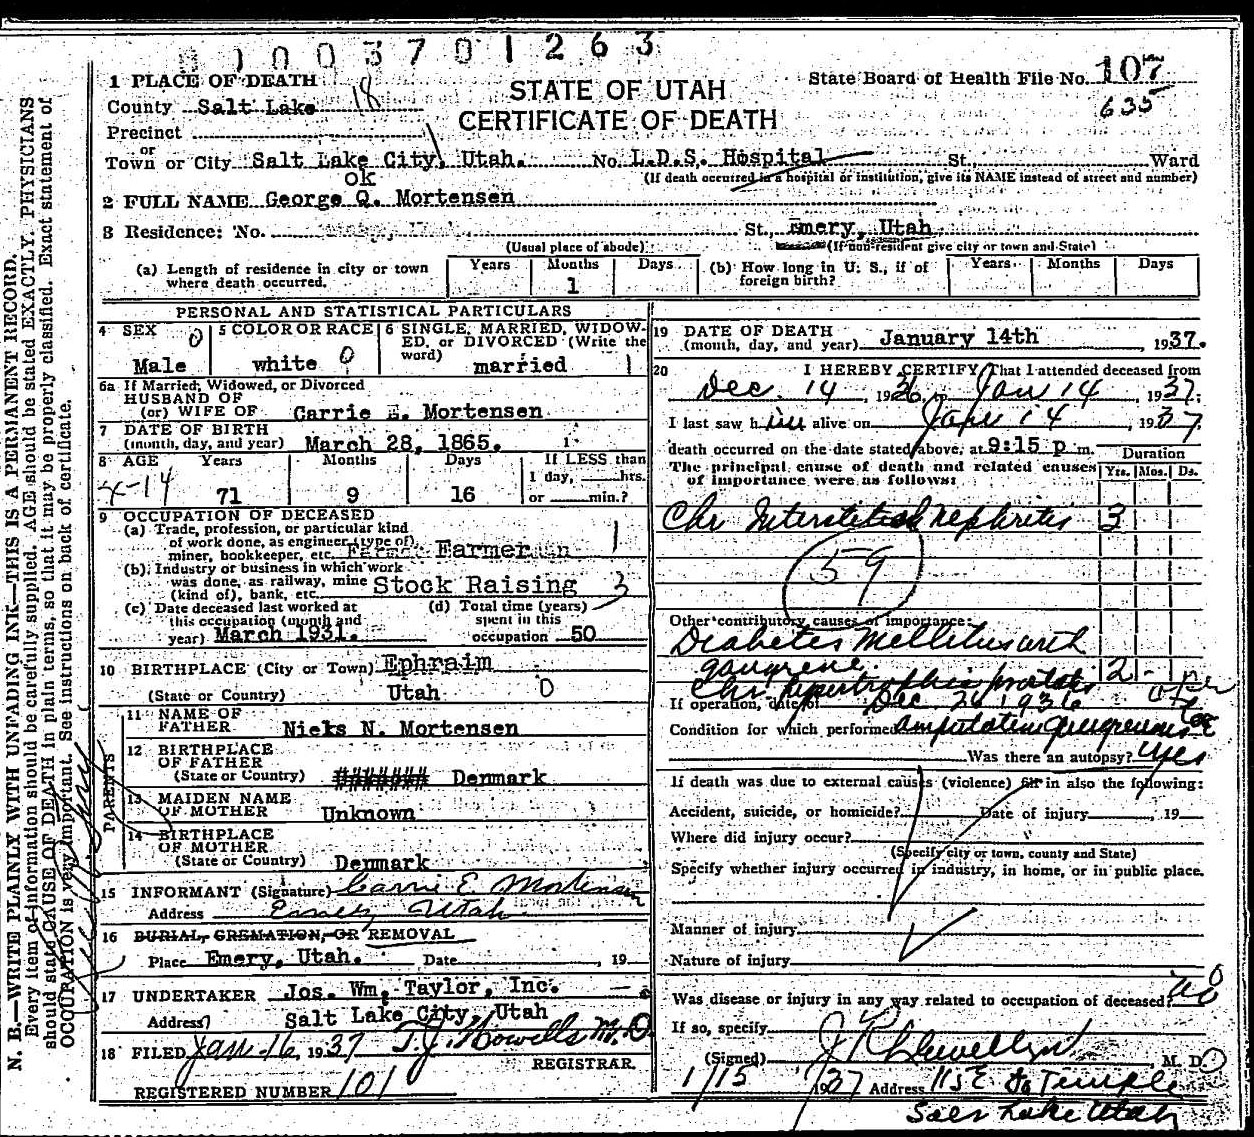 1003701263
1 PLACE OF DEATH
County Salt Lake 18
Precinct
or
Town or City Salt Lake City, Utah. No. L.D.S. Hospital St., Ward
STATE OF UTAH
CERTIFICATE OF DEATH
State Board of Health File No. 107
635
(If death occurred in a hospital or institution, give its NAME instead of street and number)
ok
2 FULL NAME George Q. Mortensen
3 Residence: No. St., Emery, Utah
(Usual place of abode) (If non-resident give city or town and State)
(a) Length of residence in city or town where death occurred. Years Months 1 Days
(b) How long in U. S., if of foreign birth? Years Months Days
PERSONAL AND STATISTICAL PARTICULARS
4 SEX Male 0
5 COLOR OR RACE white 0
6 SINGLE, MARRIED, WIDOWED, or DIVORCED (Write the word) married 1
6a If Married, Widowed, or Divorced
HUSBAND OF
(or) WIFE OF Carrie E. Mortensen
7 DATE OF BIRTH
(month, day, and year) March 28, 1865. 1
8 AGE Years Months Days If LESS than
1 day, hrs.
71 9 16 or min.?
9 OCCUPATION OF DECEASED
(a) Trade, profession, or particular kind
of work done, as engineer (type of)
miner, bookkeeper, etc. Farmer 1
(b) Industry or business in which work
was done, as railway, mine
(kind of), bank, etc. Stock Raising 3
(c) Date deceased last worked at
this occupation (month and
year) March 1931.
(d) Total time (years)
spent in this
occupation 50
10 BIRTHPLACE (City or Town) Ephraim
(State or Country) Utah 0
PARENTS
11 NAME OF
FATHER Niels N. Mortensen
12 BIRTHPLACE
OF FATHER
(State or Country) ####### Denmark
13 MAIDEN NAME
OF MOTHER Unknown
14 BIRTHPLACE
OF MOTHER
(State or Country) Denmark
15 INFORMANT (Signature) Carrie E. Mortensen
Address Emery Utah
16 BURIAL, CREMATION, OR REMOVAL
Place Emery, Utah. Date , 19
17 UNDERTAKER Jos. Wm. Taylor, Inc.
Address Salt Lake City, Utah
18 FILED Jan. 16, 1937 T.J. Howells M.D.
REGISTRAR.
REGISTERED NUMBER 101
19 DATE OF DEATH
(month, day, and year) January 14th 1937.
20 I HEREBY CERTIFY, That I attended deceased from
Dec. 14, 1936, to Jan 14, 1937;
I last saw him alive on Jan 14, 1937
death occurred on the date stated above, at 9:15 p m.
Duration
The principal cause of death and related causes
of importance were as follows: Yrs. Mos. Ds.
Chr Interstitial Nephritis 3
59
Other contributory causes of importance:
Diabetes Mellitus with
gangrene. 2
Chr hypertrophic prostate
If operation, date of Dec 26 1936
Condition for which performed amputation gangrenous toe
Was there an autopsy? yes
If death was due to external causes (violence) fill in also the following:
Accident, suicide, or homicide? Date of injury , 19
Where did injury occur?
(Specify city or town, county and State)
Specify whether injury occurred in industry, in home, or in public place.
Manner of injury
Nature of injury
Was disease or injury in any way related to occupation of deceased? no 0
If so, specify
(Signed) J R Llewellyn M. D.
1/15 1937 Address 115 E So Temple
Salt Lake Utah
N. B.—WRITE PLAINLY WITH UNFADING INK—THIS IS A PERMANENT RECORD.
Every item of information should be carefully supplied. AGE should be stated EXACTLY. PHYSICIANS
should state CAUSE OF DEATH in plain terms, so that it may be properly classified. Exact statement of
OCCUPATION is very important. See instructions on back of certificate.